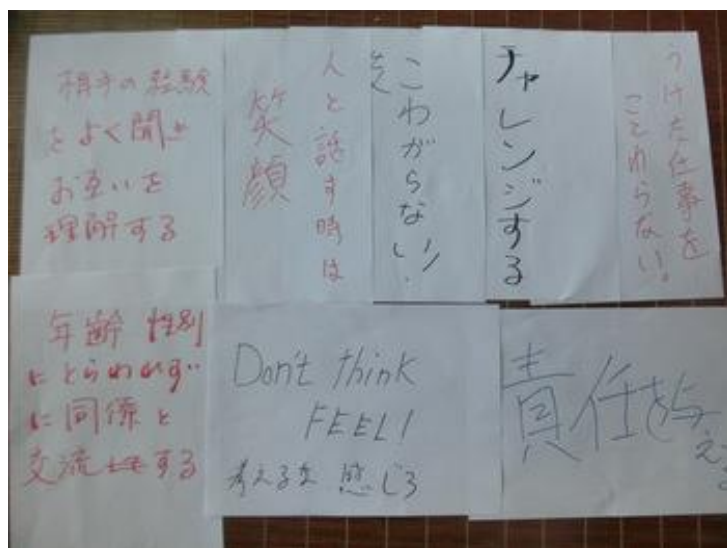 相手の経験
をよく聞き
お互いを
理解する
人と話す時は
笑顔
チャレンジする
を
こわがらない!
うけた仕事を
ことわらない!
年齢 性別
にとらわれず
に同僚と
交流する
Don't think
FEEL!
考えるな 感じろ
責任を与える